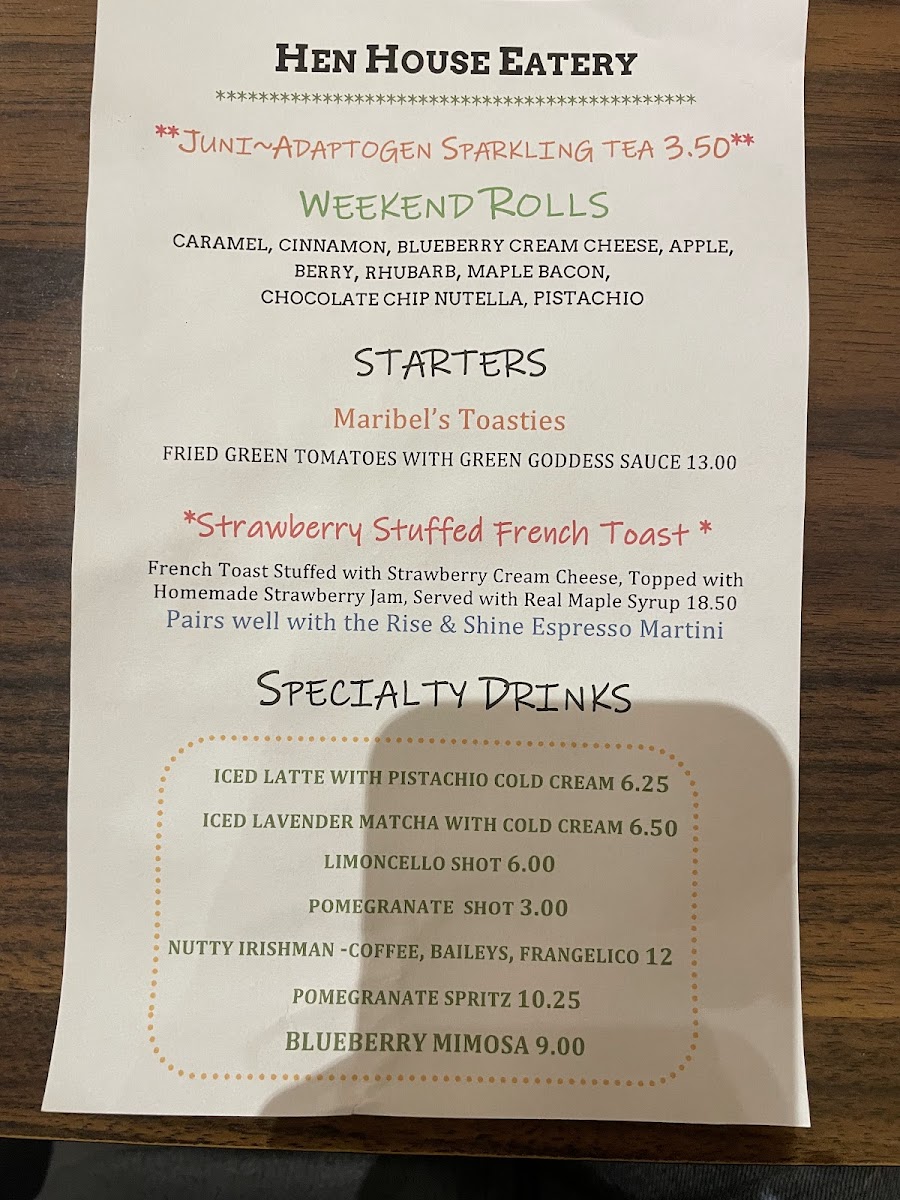 HEN HOUSE EATERY
*********************************************
**JUNI~ADAPTOGEN SPARKLING TEA 3.50**
WEEKEND ROLLS
CARAMEL, CINNAMON, BLUEBERRY CREAM CHEESE, APPLE,
BERRY, RHUBARB, MAPLE BACON,
CHOCOLATE CHIP NUTELLA, PISTACHIO
STARTERS
Maribel's Toasties
FRIED GREEN TOMATOES WITH GREEN GODDESS SAUCE 13.00
*Strawberry Stuffed French Toast *
French Toast Stuffed with Strawberry Cream Cheese, Topped with
Homemade Strawberry Jam, Served with Real Maple Syrup 18.50
Pairs well with the Rise & Shine Espresso Martini
SPECIALTY DRINKS
ICED LATTE WITH PISTACHIO COLD CREAM 6.25
ICED LAVENDER MATCHA WITH COLD CREAM 6.50
LIMONCELLO SHOT 6.00
POMEGRANATE SHOT 3.00
NUTTY IRISHMAN -COFFEE, BAILEYS, FRANGELICO 12
POMEGRANATE SPRITZ 10.25
BLUEBERRY MIMOSA 9.00